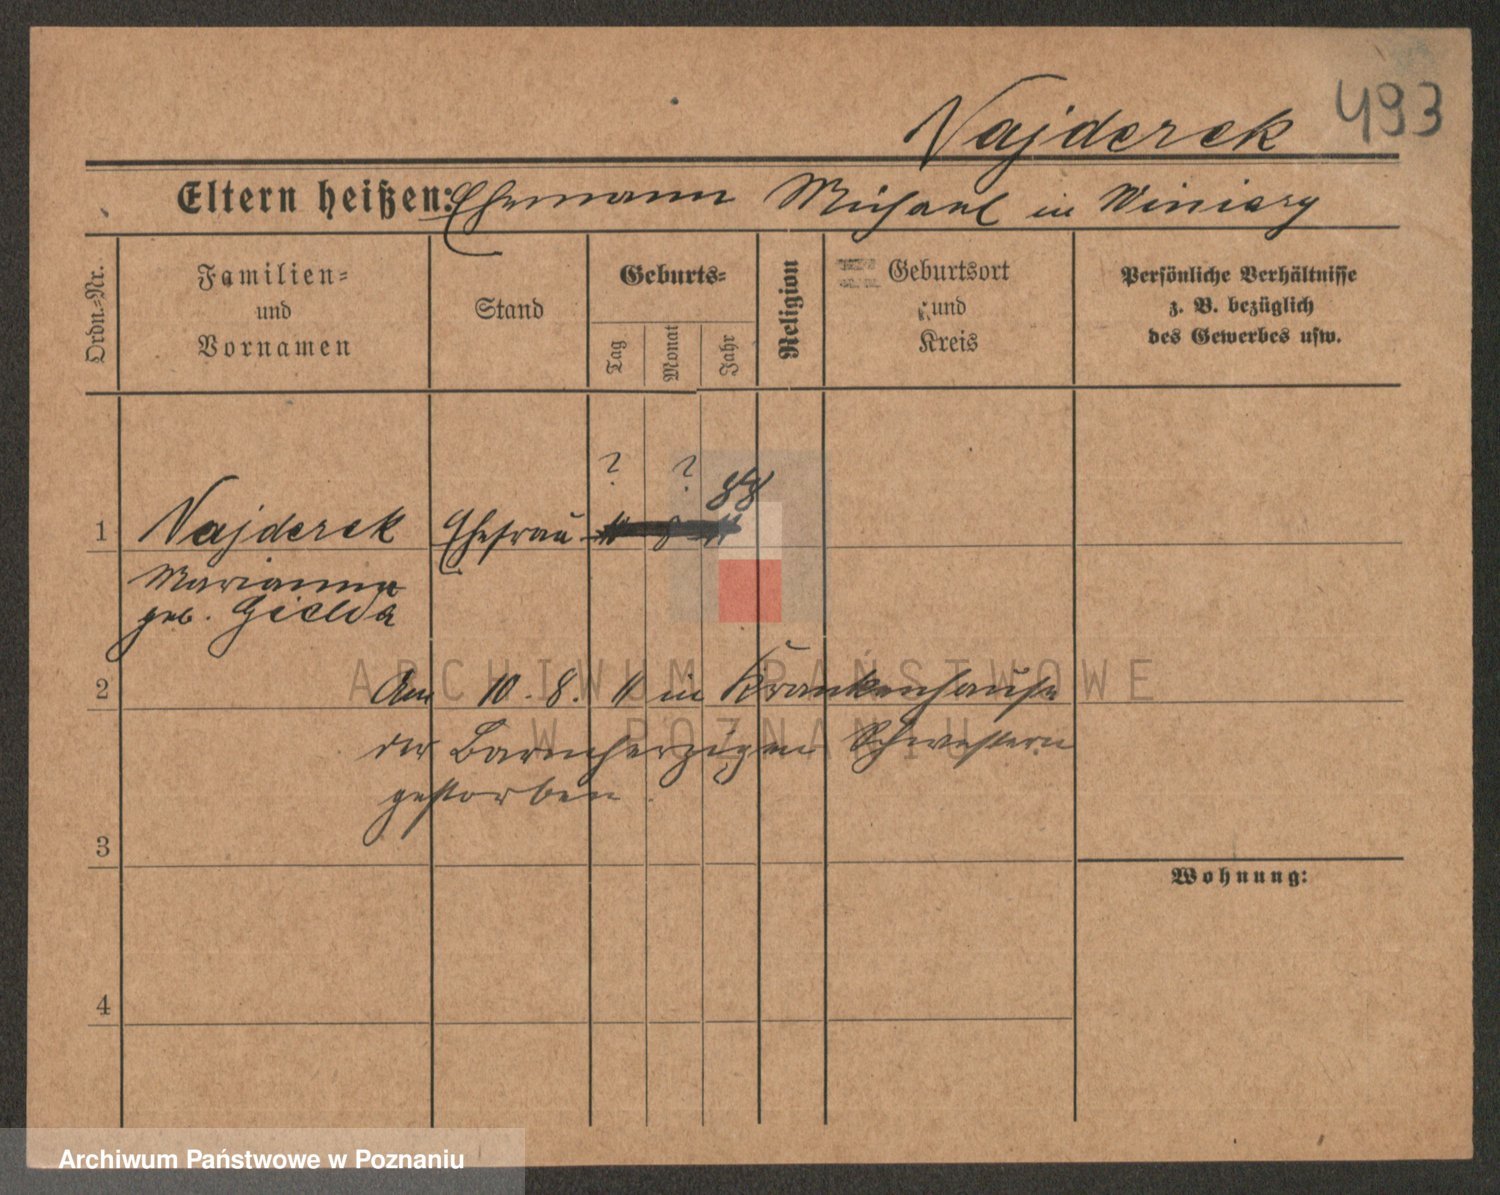 493
Najderek
Eltern heißen: Ehemann Michael in Winiary
Ordn.-Nr.
Familien-
und
Vornamen
Stand
Geburts-
Tag
Monat
Jahr
Religion
Geburtsort
und
Kreis
Persönliche Verhältnisse
z. B. bezüglich
des Gewerbes usw.
? ? 88
1 Najderek Ehefrau
Marianna
geb. Gielda
ARCHIWUM PAŃSTWOWE
2 Am 10. 8. 11 in Krankenhause
W POZNANIU
der Barmherzigen Schwestern
gestorben.
3
Wohnung:
4
Archiwum Państwowe w Poznaniu